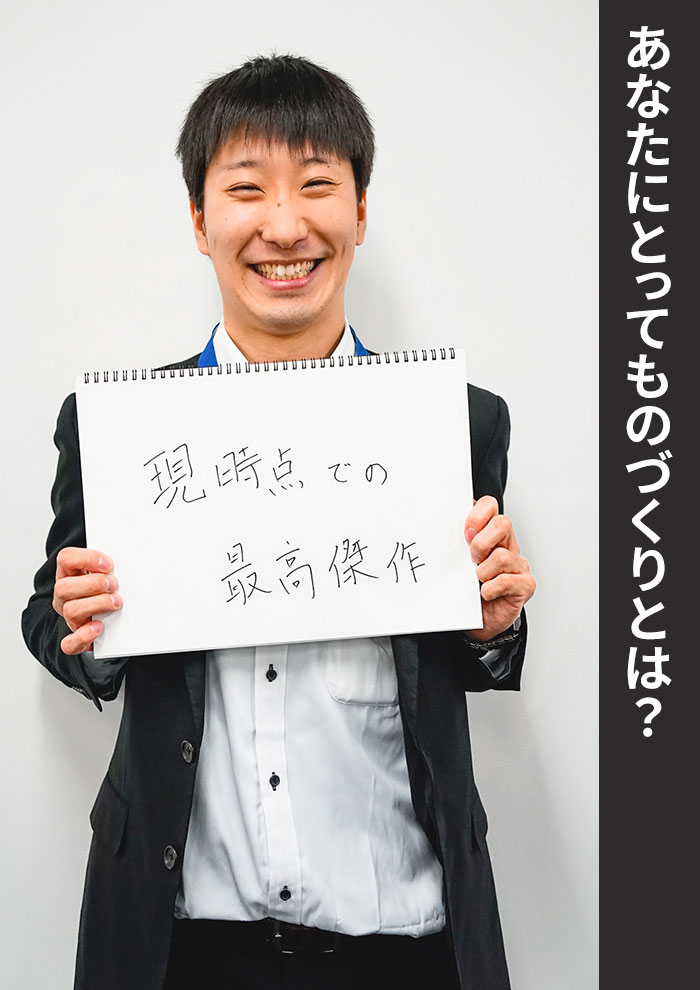 あなたにとってものづくりとは？
現時点での
最高傑作